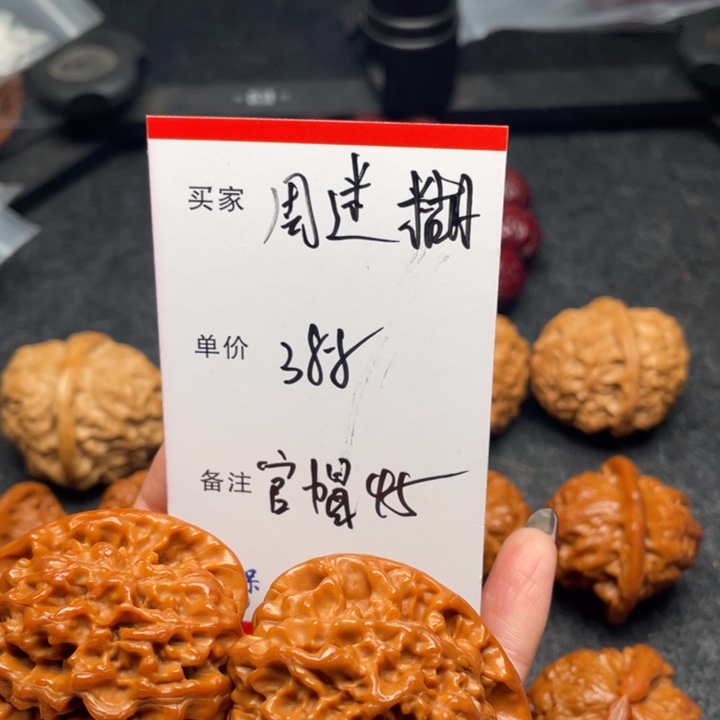 买家 周迷糊
单价 388
备注 官帽45
保